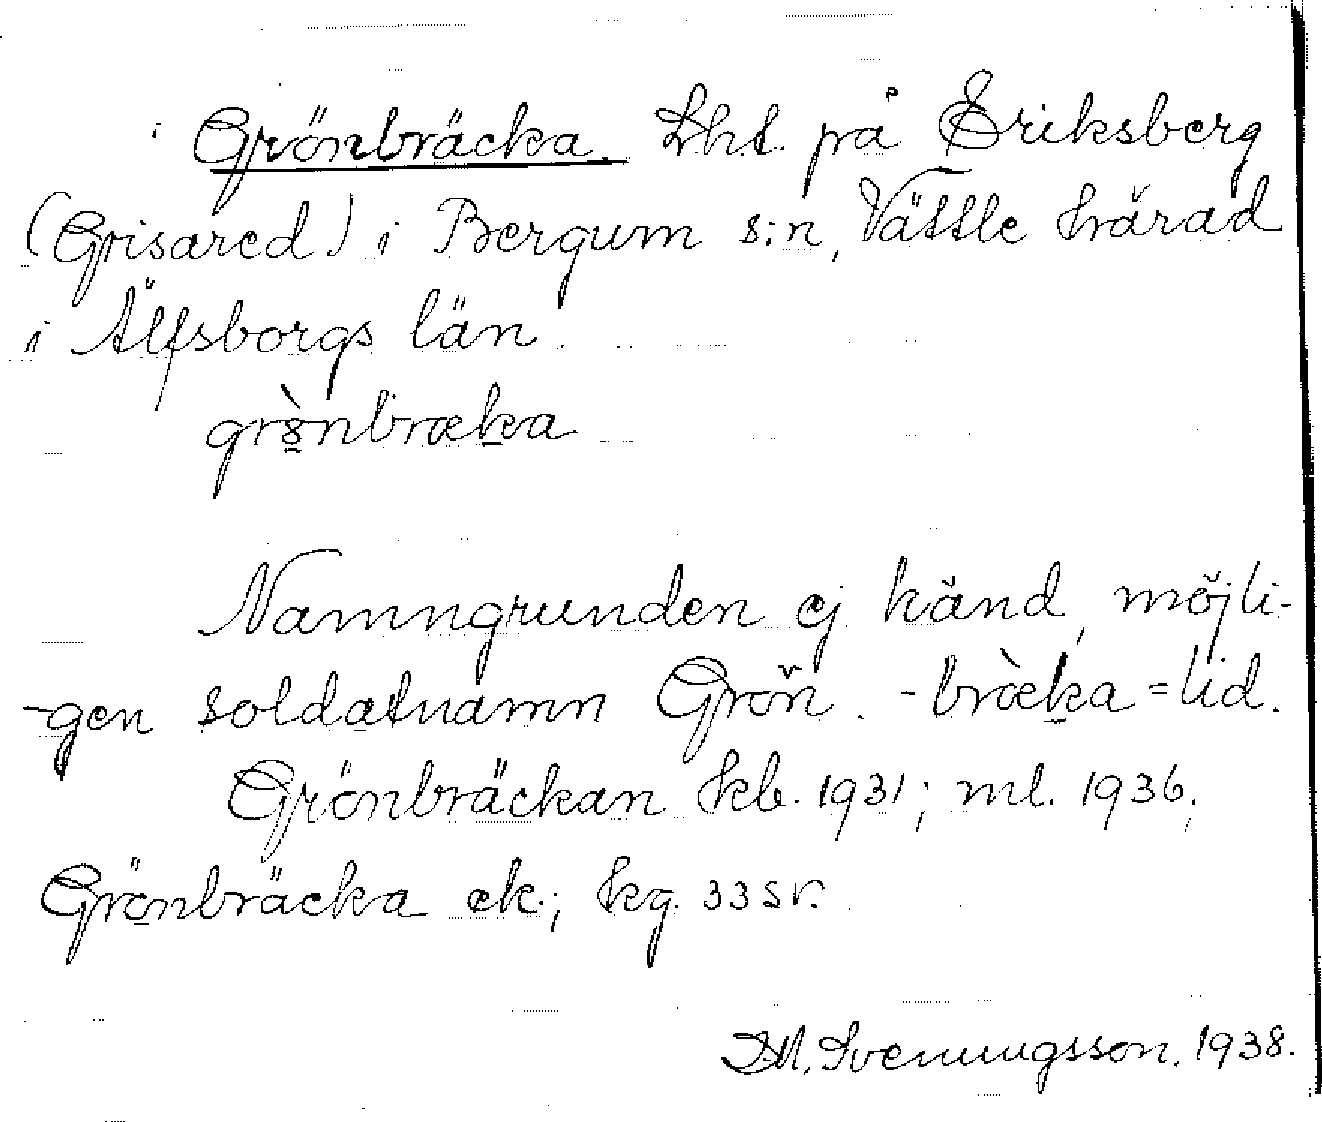 Grönbräcka. Lht. på Eriksberg
(Grisared) i Bergum s:n, Vättle härad
i Älfsborgs län.
grö̀nbræka
Namngrunden ej känd, möjli-
-gen soldatnamn Grön. -bræ̀ka = lid.
Grönbräckan kb. 1931; ml. 1936,
Grönbräcka ek.; kg. 33 sv.
Svenungsson. 1938.